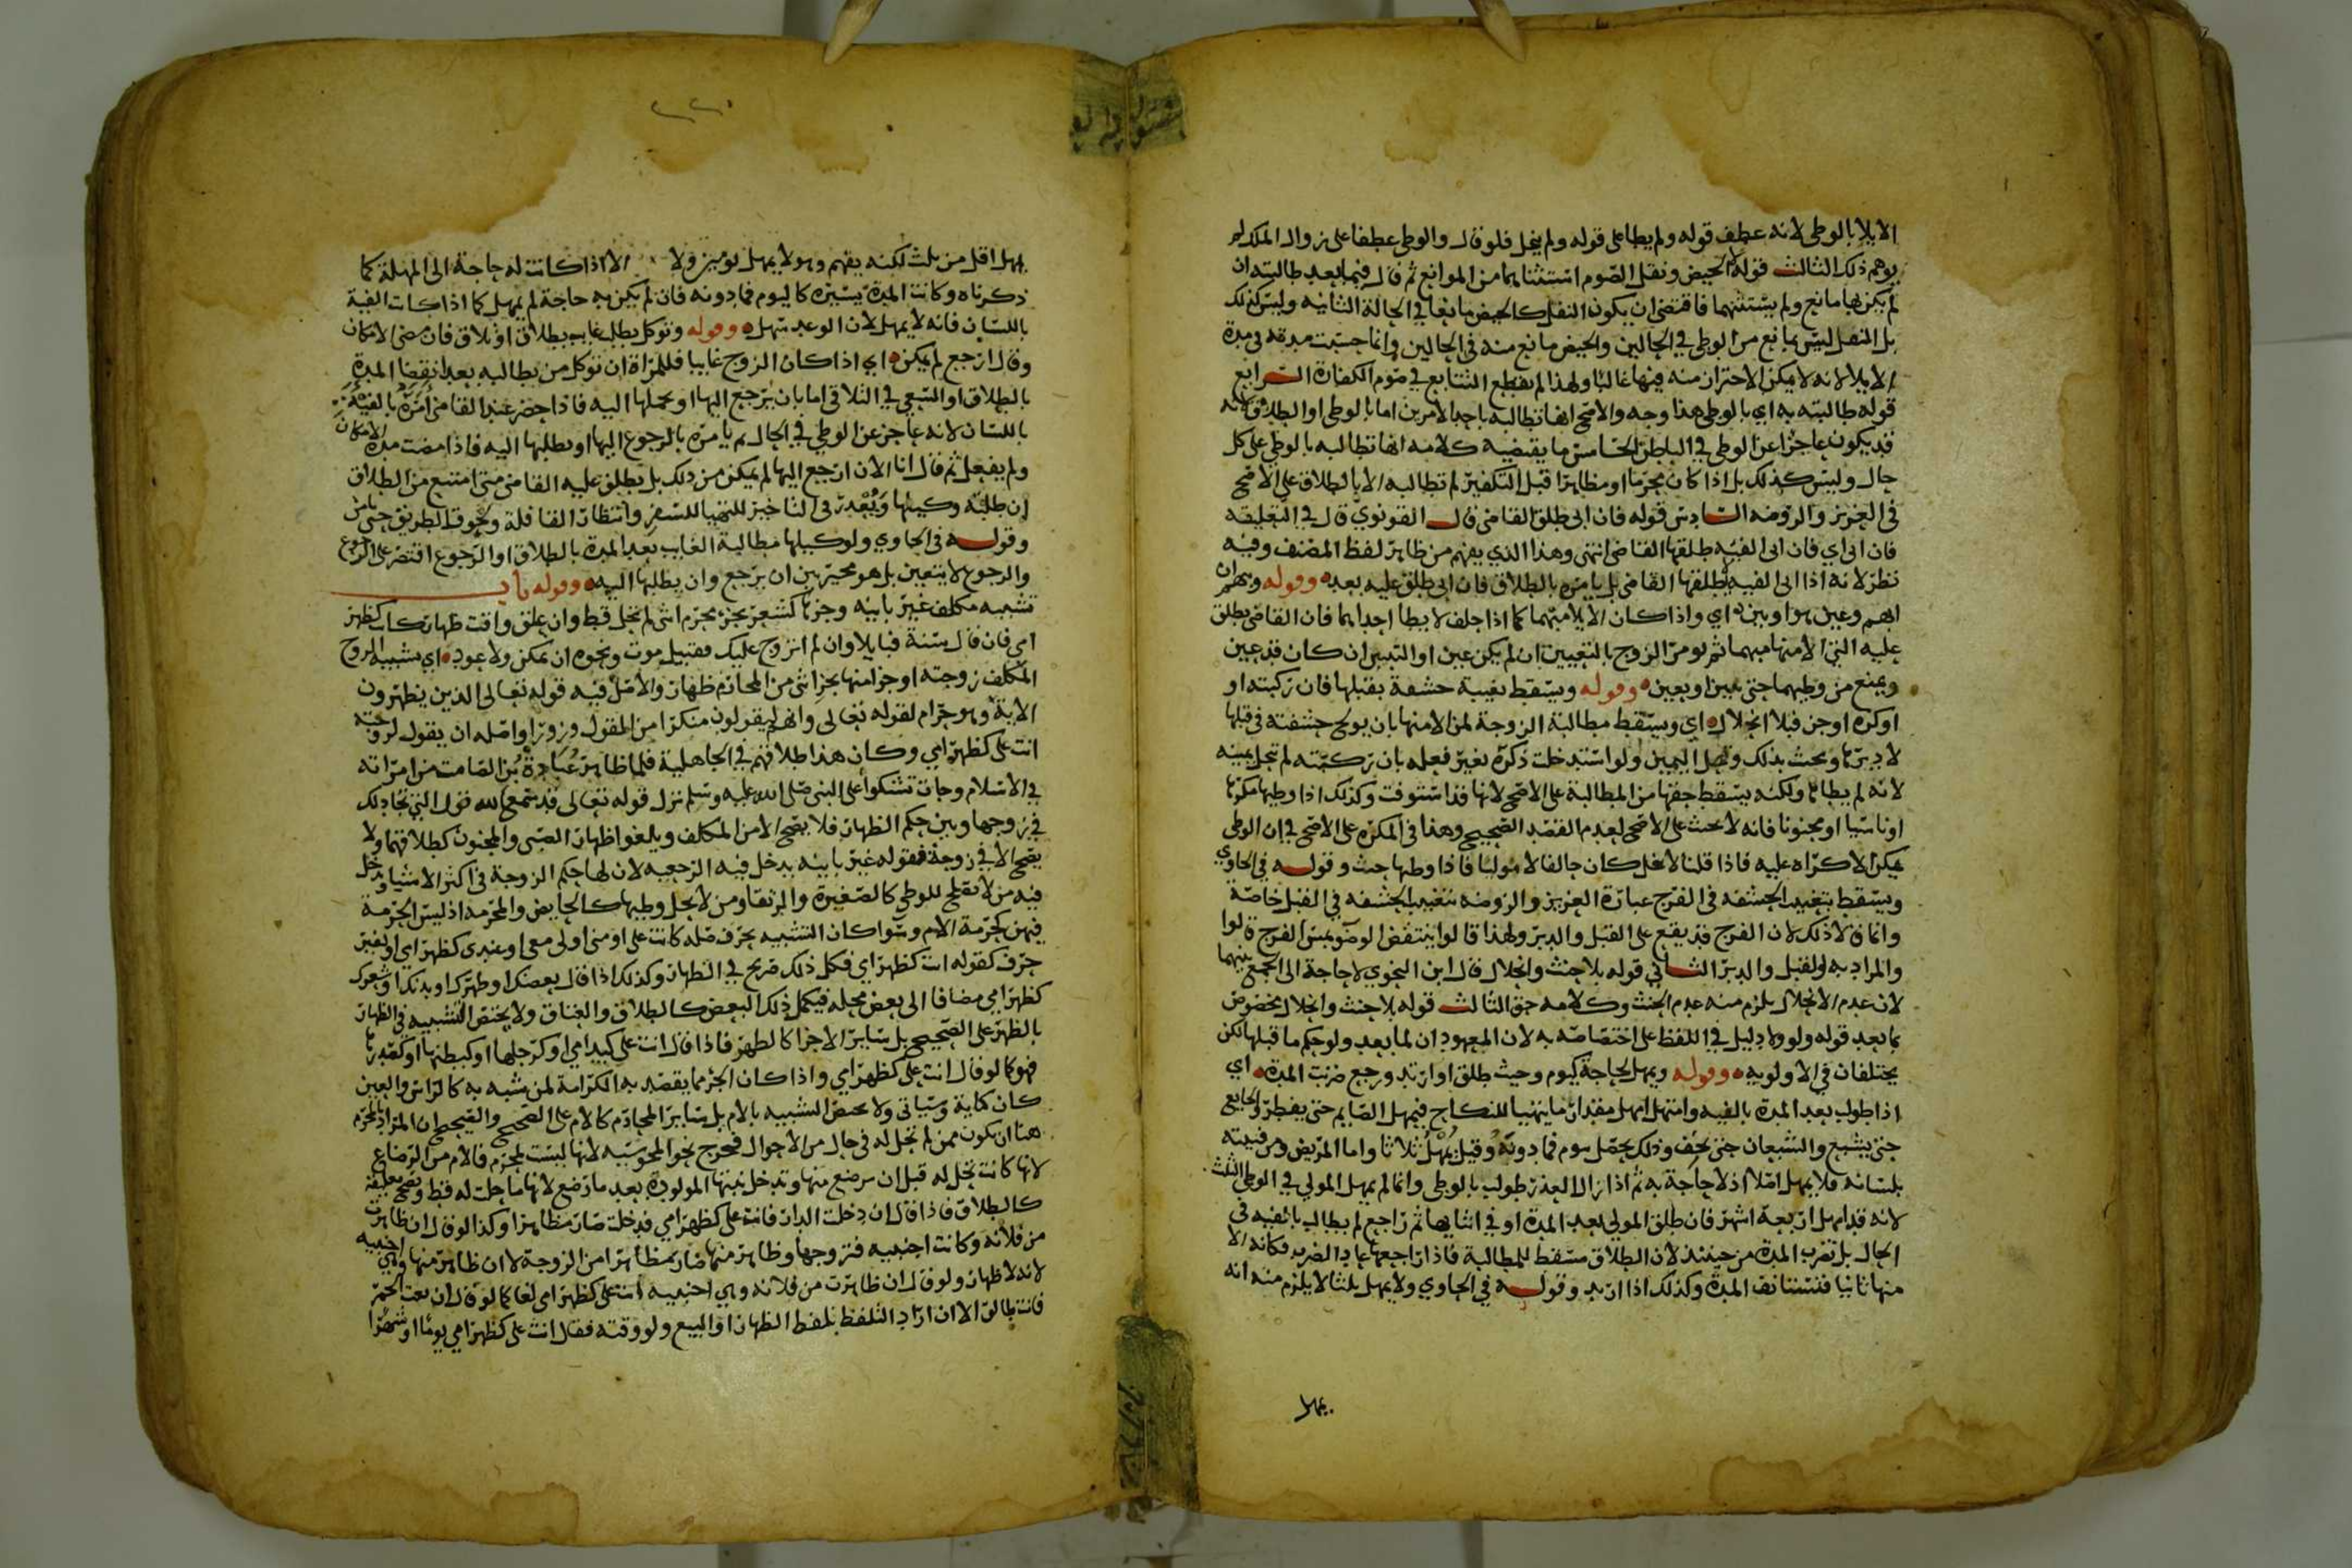 الايلا بالوطى لانه عطف قوله ولم يطا على قوله ولم يحل فلو قال والوطى عطفا على زوال الملك لم
يوهم ذلك الثالث قوله لا الحيض ونفل الصوم استثناهما من الموانع ثم قال فيما بعد طالبته ان
لم يكن بها مانع ولم يستثنهما فاقتضى ان يكون النفل كالحيض مانعا في الحالة الثانيه وليس كذلك
بل النفل ليس بمانع من الوطى في الحالين والحيض مانع منه في الحالين وانما حسبت مدته في مدة
الايلا لانه لا يمكن الاحتراز منه فيها غالبا ولهذا لم يقطع التتابع في صوم الكفارة الرابع
قوله طالبته به اي بالوطى هذا وجه والاصح انها تطالبه باحد الامرين اما بالوطى او الطلاق لانه
قد يكون عاجزا عن الوطى في الباطن الخامس ما يقتضيه كلامه انها تطالبه بالوطى على كل
حال وليس كذلك بل اذا كان محرما او مظاهرا قبل التكفير لم تطالبه الا بالطلاق على الاصح
في العزيز والروضه السادس قوله فان ابى طلق القاضى قال القونوي قال في التعليقه
فان ابى اي فان ابى الفيه طلقها القاضى انتهى وهذا الذي يفهم من ظاهر لفظ المصنف وفيه
نظر لانه اذا ابى الفيه لا يطلقها القاضى بل يامره بالطلاق فان ابى طلق عليه بعده وقوله وبهم ان
ابهم وعين هو او بين اي واذا كان الايلا مبهما كما اذا حلف لا يطا احداهما فان القاضى يطلق
عليه التي الا منها مبهما ثم يومر الزوج بالتعيين ان لم يكن عين او التبيين ان كان قد عين
ويمنع من وطيهما حتى يبين او يعين وقوله ويسقط بغيبة حشفة بقبلها فان ركبته او
اوكره او جن فبلا انحلال اي ويسقط مطالبة الزوجة لمن الا منها بان يولج حشفته في قبلها
لا دبرها ويحنث بذلك وتحل اليمين ولو استدخلت ذكره بغير فعله بان ركبته لم تحل يمينه
لانه لم يطاها ولكنه يسقط حقها من المطالبة على الاصح لانها قد استوفت وكذلك اذا وطيها مكرها
او ناسيا او مجنونا فانه لا يحنث على الاصح لعدم القصد الصحيح وهذا في المكره على الاصح في ان الوطى
يمكن الاكراه عليه فاذا قلنا لا تحل كان حالفا لا موليا فاذا وطيها حنث وقوله في الحاوي
ويسقط بتغييب الحشفه في الفرج عبارة العزيز والروضه بتغييب الحشفه في القبل خاصة
وانما قالا ذلك لان الفرج قد يقع على القبل والدبر ولهذا قالوا ينتقض الوضو بمس الفرج قالوا
والمراد به القبل والدبر الثاني قوله بلا حنث وانحلال قال ابن النحوي لا حاجة الى الجمع بينهما
لان عدم الانحلال يلزم منه عدم الحنث وكلامه حق الثالث قوله بلا حنث وانحلال مخصوص
بما بعد قوله ولو ولا دليل في اللفظ على اختصاصه به لان المعهود ان لما بعد ولو حكم ما قبلها لكن
يختلفان في الاولويه وقوله ويمهل لحاجة كيوم وحيث طلق او ارتد ورجع ضربت المدة اي
اذا طولب بعد المدة بالفيه وامتهل امهل مقدار ما يتهيا للنكاح فيمهل الصايم حتى يفطر والجايع
حتى يشبع والشبعان حتى يخف وذلك يحصل بيوم فما دونه وقيل يمهل ثلاثا واما المريض ومن فييته
بلسانه فلا يمهل اصلا اذ لا حاجة به ثم اذا زال العذر طولب بالوطى وانما لم يمهل المولي في الوطى الثلث
لانه قد امهل اربعة اشهر فان طلق المولى بعد المدة او في اثنايها ثم راجع لم يطالب بالفيه في
الحال بل تضرب المدة من حينئذ لان الطلاق مسقط للمطالبة فاذا راجعها عاد الضرر فكانه الا
منها ثانيا فتستانف المدة وكذلك اذا ارتد وقوله في الحاوي ولا يمهل ثلثا لا يلزم منه انه
يمهل
يمهل اقل من ثلث لكنه يفهم وهو لا يمهل يومين ولا الا اذا كانت له حاجة الى المهلة كما
ذكرناه وكانت المدة يسيره كاليوم فما دونه فان لم يكن به حاجة لم يمهل كما اذا كانت الفية
باللسان فانه لا يمهل لان الوعد سهل وقوله وتوكل بطلب غايب بطلاق او تلاق فان مضى الامكان
وقال ارجع لم يمكن اي اذا كان الزوج غايبا فللمراة ان توكل من يطالبه بعد انقضا المدة
بالطلاق او السعي في التلاقى اما بان يرجع اليها او يحملها اليه فاذا حضر عند القاضى امره بالفيه
باللسان لانه عاجز عن الوطى في الحال ثم يامره بالرجوع اليها او بطلبها اليه فاذا مضت مدة الامكان
ولم يفعل ثم قال انا الان ارجع اليها لم يمكن من ذلك بل يطلق عليه القاضى متى امتنع من الطلاق
ان طلبته وكيلها ويعذر في التاخير للتهيا للسفر وانتظار القافلة وخوف الطريق حتى يامن
وقوله في الحاوي ولوكيلها مطالبة الغايب بعد المدة بالطلاق او الرجوع اقتصر على الرجوع
والرجوع لا يتعين بل هو مخير بين ان يرجع وان يطلبها اليه وقوله باب
تشبيه مكلف غير باينه وجزها كشعر بجزء محرم انثى لم تحل قط وان علق واقت ظهار كانت كظهر
امي فان قال سنة فبايلا وان لم اتزوج عليك فقبيل موت ونحوه ان تمكن ولا عود اي تشبيه الزوج
المكلف زوجته او جزا منها بجزانثى من المحارم ظهار والاصل فيه قوله تعالى الذين يظهرون
الاية وهو حرام لقوله تعالى وانهم ليقولون منكرا من القول وزورا واصله ان يقول لزوجته
انت على كظهر امي وكان هذا طلاقهم في الجاهلية فلما ظاهر عبادة بن الصامت من امراته
في الاسلام وجات تشتكوا على النبى صلى الله عليه وسلم نزل قوله تعالى قد سمع الله قول التي تجادلك
في زوجها وبين حكم الظهار فلا يصح الا من المكلف ويلغوا ظهار الصبى والمجنون كطلاقهما ولا
يصح الا في زوجة فقوله غير باينه يدخل فيه الرجعيه لان لها حكم الزوجة في اكثر الاشيا ويدخل
فيه من لا تصلح للوطى كالصغيرة والرتقا ومن لا يحل وطيها كالحايض والمحرمه اذ ليس الحرمة
فيهن كحرمة الام وسوا كان التشبيه بحرف صله كانت على او منى او لي معي او عندى كظهر امي او بغير
حرف كقوله انت كظهر امي فكل ذلك صريح في الظهار وكذلك اذا قال بعضك او ظهرك او بدنك او شعرك
كظهر امي مضافا الى بعض محله فيكمل ذلك البعض كالطلاق والعتاق ولا يختص التشبيه في الظهار
بالظهر على الصحيح بل ساير الاجزا كالظهر فاذا قال انت على كيد امي او كرجلها او كبطنها او كصدرها
فهو كما لو قال انت على كظهر امي واذا كان الجزء مما يقصد به الكرامة لمن شبه به كالراس والعين
كان كناية وسياتى ولا يختص التشبيه بالام بل ساير المحارم كالام على الصحيح والصحيح ان المراد بالمحرم
هنا ان يكون ممن لم تحل له في حال من الاحوال فخرج بحوا المجوسيه لانها ليست بمحرم فالام من الرضاع
لانها كانت تحل له قبل ان يرضع منها وتدخل بنتها المولودة بعد ما رضع لانها ما حلت له قط ويصح تعليقه
كالطلاق فاذا قال ان دخلت الدار فانت على كظهر امي فدخلت صار مظاهرا وكذا لو قال ان ظاهرت
من فلانه وكانت اجنبيه فتزوجها وظاهر منها صار مظاهرا من الزوجة لا ان ظاهر منها وهي اجنبيه
لانه لا ظهار ولو قال ان ظاهرت من فلانه وهي اجنبيه انت على كظهر امي لغا كما لو قال ان بعت الخمر
فانت طالق الا ان اراد التلفظ بلفظ الظهار او البيع ولو وقته فقال انت على كظهر امي يوما او شهرا